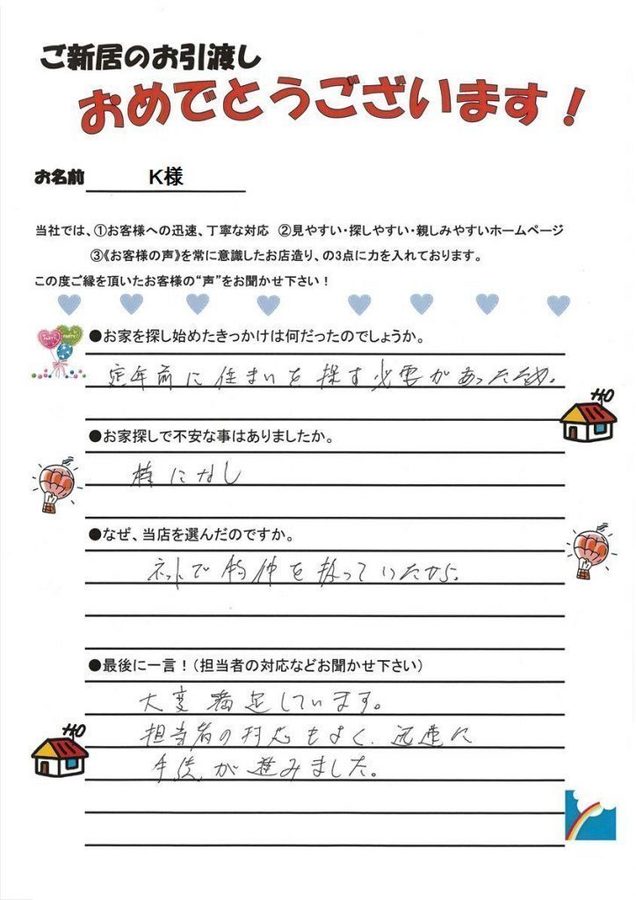 ご新居のお引渡し
おめでとうございます！
お名前 K様
当社では、①お客様への迅速、丁寧な対応 ②見やすい・探しやすい・親しみやすいホームページ
③《お客様の声》を常に意識したお店造り、の3点に力を入れております。
この度ご縁を頂いたお客様の“声”をお聞かせ下さい！
●お家を探し始めたきっかけは何だったのでしょうか。
定年前に住まいを探す必要があったため。
●お家探しで不安な事はありましたか。
特になし
●なぜ、当店を選んだのですか。
ネットで物件を扱っていたから。
●最後に一言！（担当者の対応などお聞かせ下さい）
大変満足しています。
担当者の対応もよく、迅速に
手続が進みました。